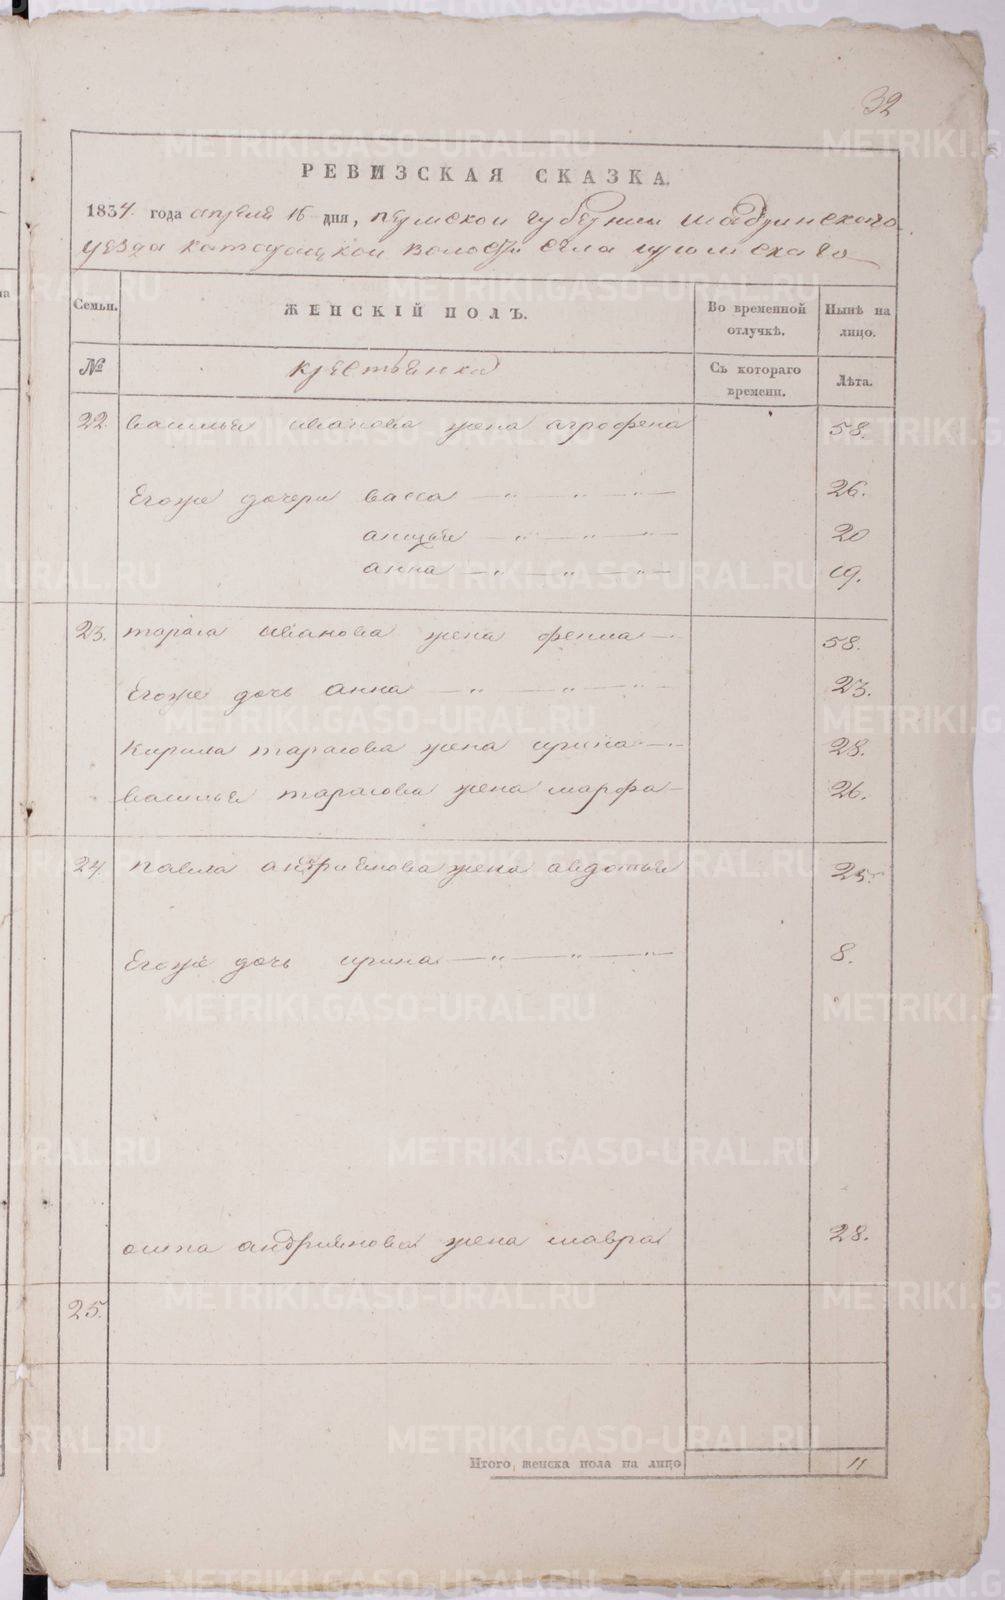 32
РЕВИЗСКАЯ СКАЗКА.
1834. года апреля 16 дня, пермской губернии шадринского
уезда катайской волости села
Семьи. ЖЕНСКІЙ ПОЛЪ. Во временной отлучкѣ. Нынѣ на лицо.
№ крестьянка Съ котораго времени. Лѣта.
22. василья иванова жена агрофена 58.
Егоже дочери васса — " — " — " — 26.
анисья — " — " — " — 20
анна — " — " — " — 19.
23. тараса иванова жена фекла — 58.
Егоже дочь анна — " — " — " — 23.
Кирила тарасова жена ирина — 28.
василья тарасова жена марфа — 26.
24. павла андриянова жена авдотья 25.
Егоже дочь ирина — " — " — " — 8.
осипа андриянова жена мавра 28.
25.
Итого, женска пола на лицо 11
METRIKI.GASO-URAL.RU